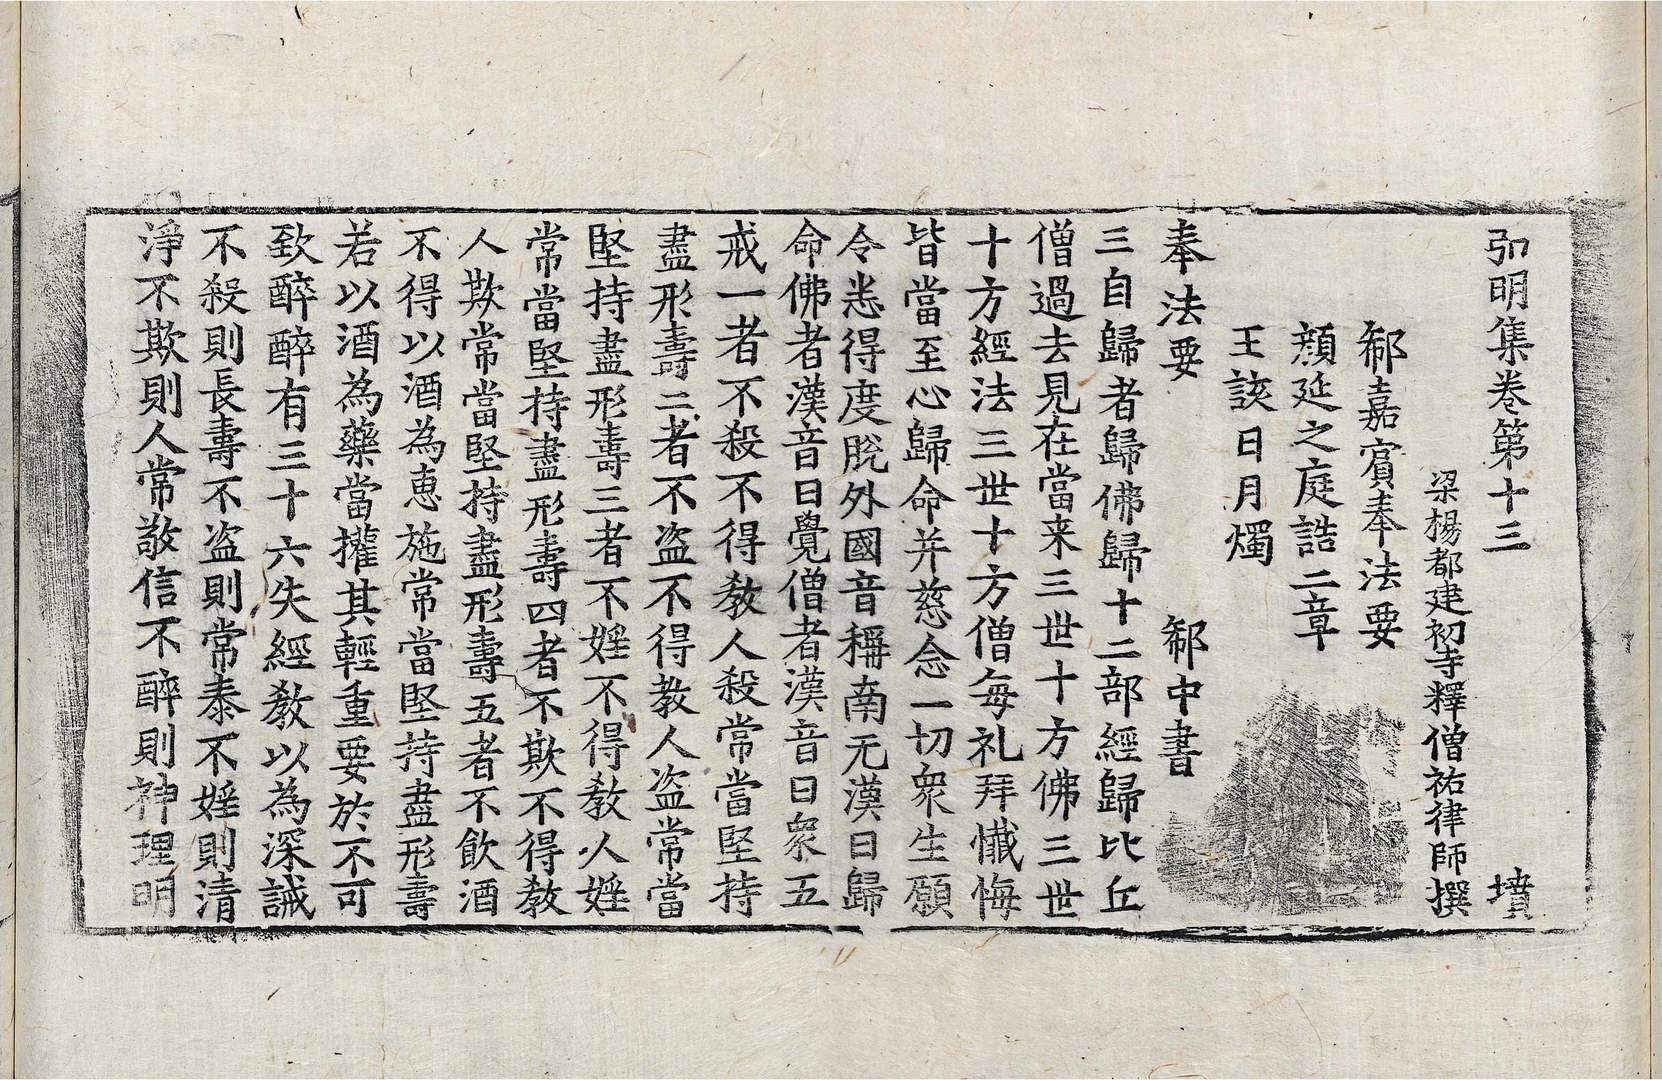 弘明集卷第十三 墳
梁楊都建初寺釋僧祐律師撰
郗嘉賓奉法要
顔延之庭誥二章
王該日月燭
奉法要 郗中書
三自歸者歸佛歸十二部經歸比丘
僧過去見在當来三世十方佛三世
十方經法三世十方僧每礼拜懺悔
皆當至心歸命并慈念一切衆生願
令悉得度脫外國音稱南无漢曰歸
命佛者漢音曰覺僧者漢音曰衆五
戒一者不殺不得教人殺常當堅持
盡形壽二者不盜不得教人盜常當
堅持盡形壽三者不婬不得教人婬
常當堅持盡形壽四者不欺不得教
人欺常當堅持盡形壽五者不飲酒
不得以酒為惠施常當堅持盡形壽
若以酒為藥當攉其輕重要於不可
致醉醉有三十六失經教以為深誡
不殺則長壽不盜則常泰不婬則清
淨不欺則人常敬信不醉則神理明